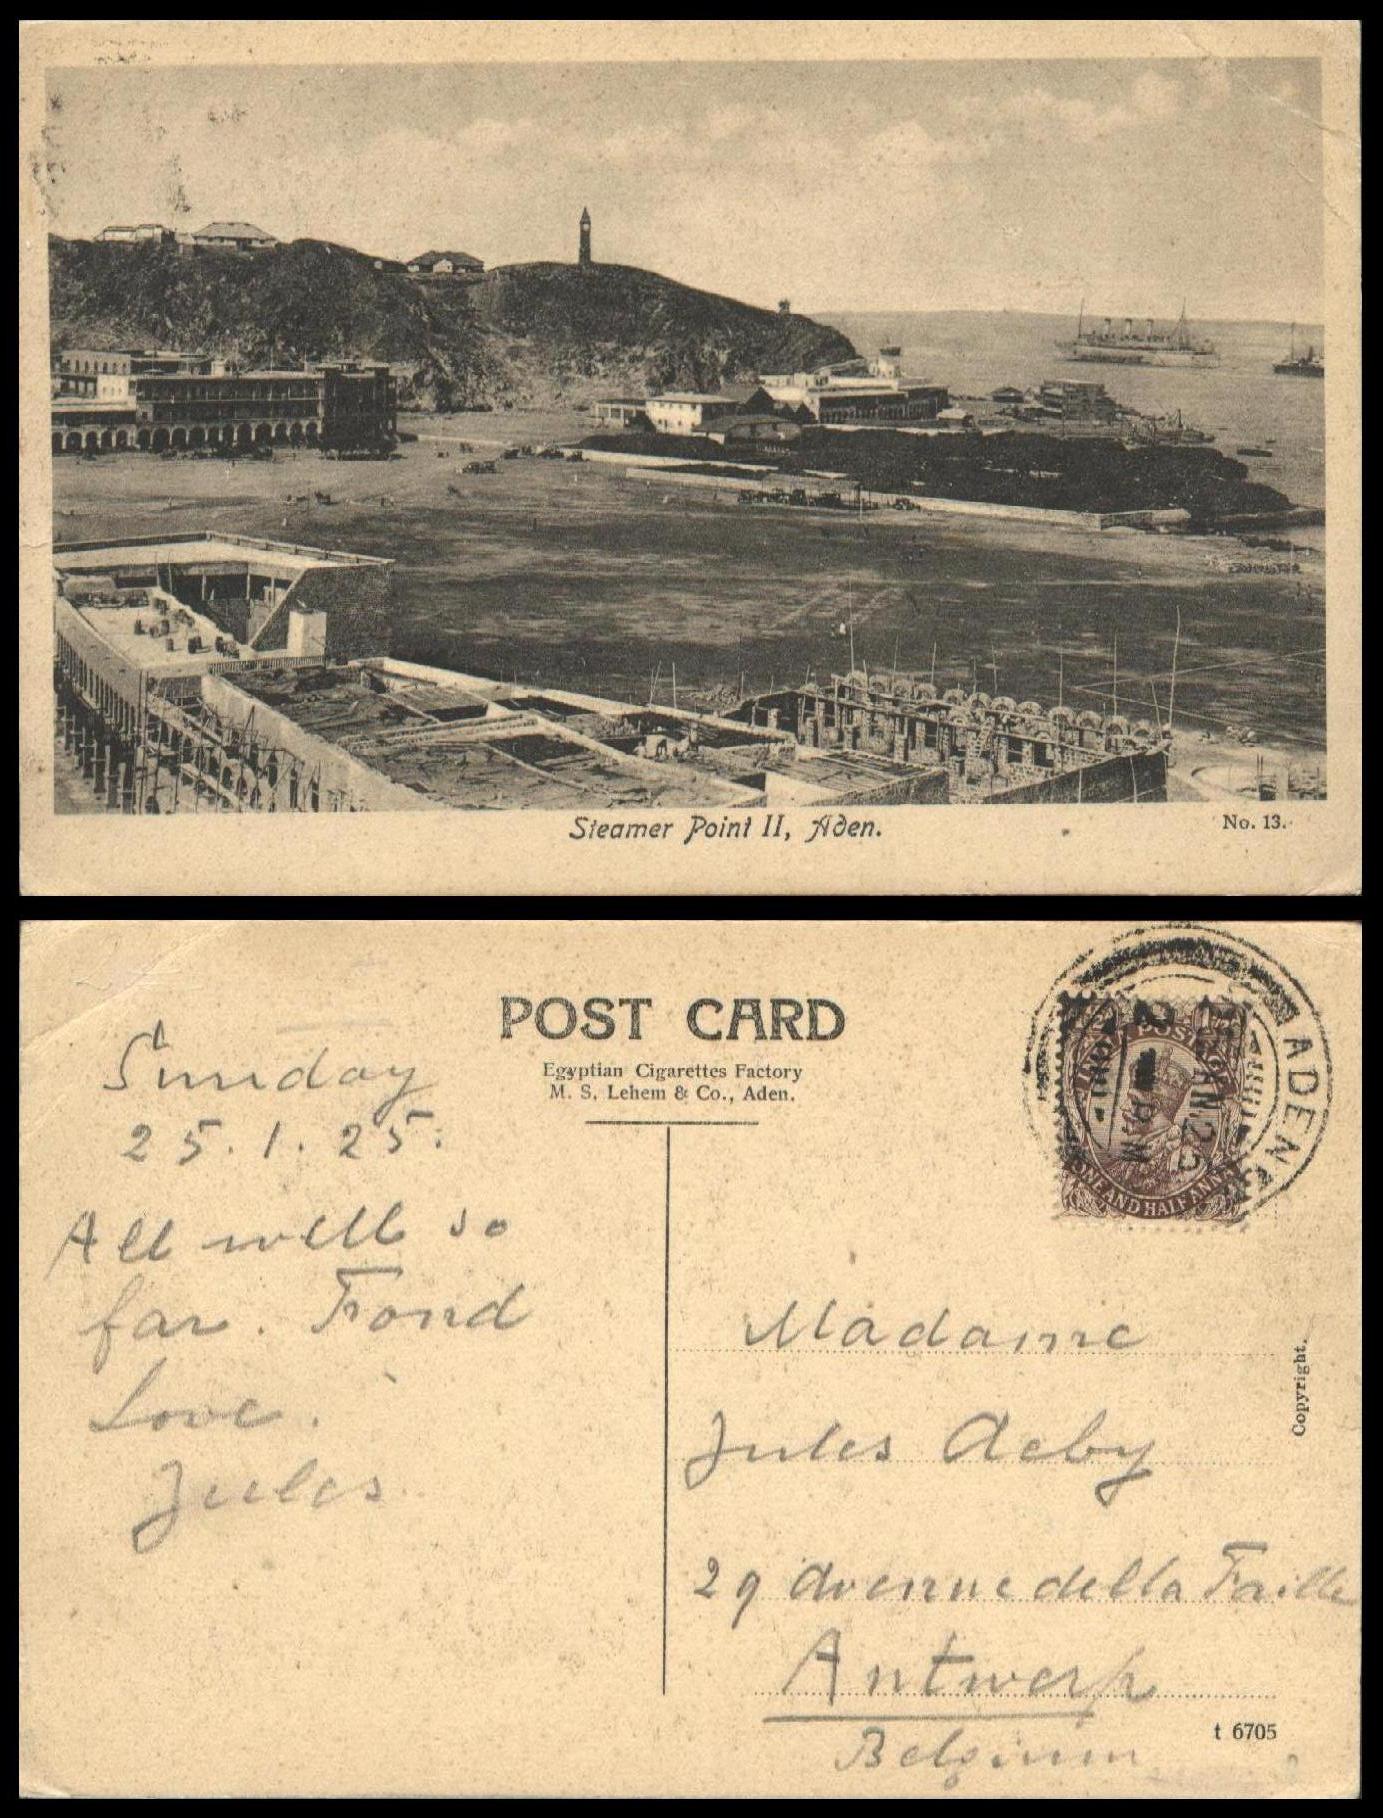 Steamer Point II, Aden.
No. 13.
POST CARD
Egyptian Cigarettes Factory
M. S. Lehem & Co., Aden.
Sunday
25.1.25.
All well so
far. Fond
Love.
Jules
ADEN
INDIA POSTAGE
ONE AND HALF ANNAS
Madame
Jules Aeby
29 Avenue della Faille
Antwerp
Belgium
Copyright.
t 6705